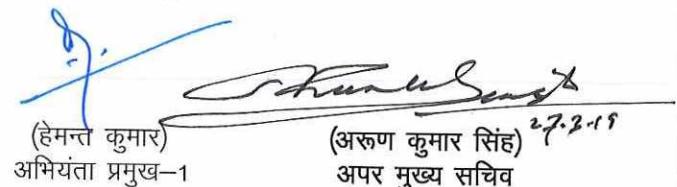 (हेमन्त कुमार)
अभियंता प्रमुख–1
(अरूण कुमार सिंह)
27.3.19
अपर मुख्य सचिव